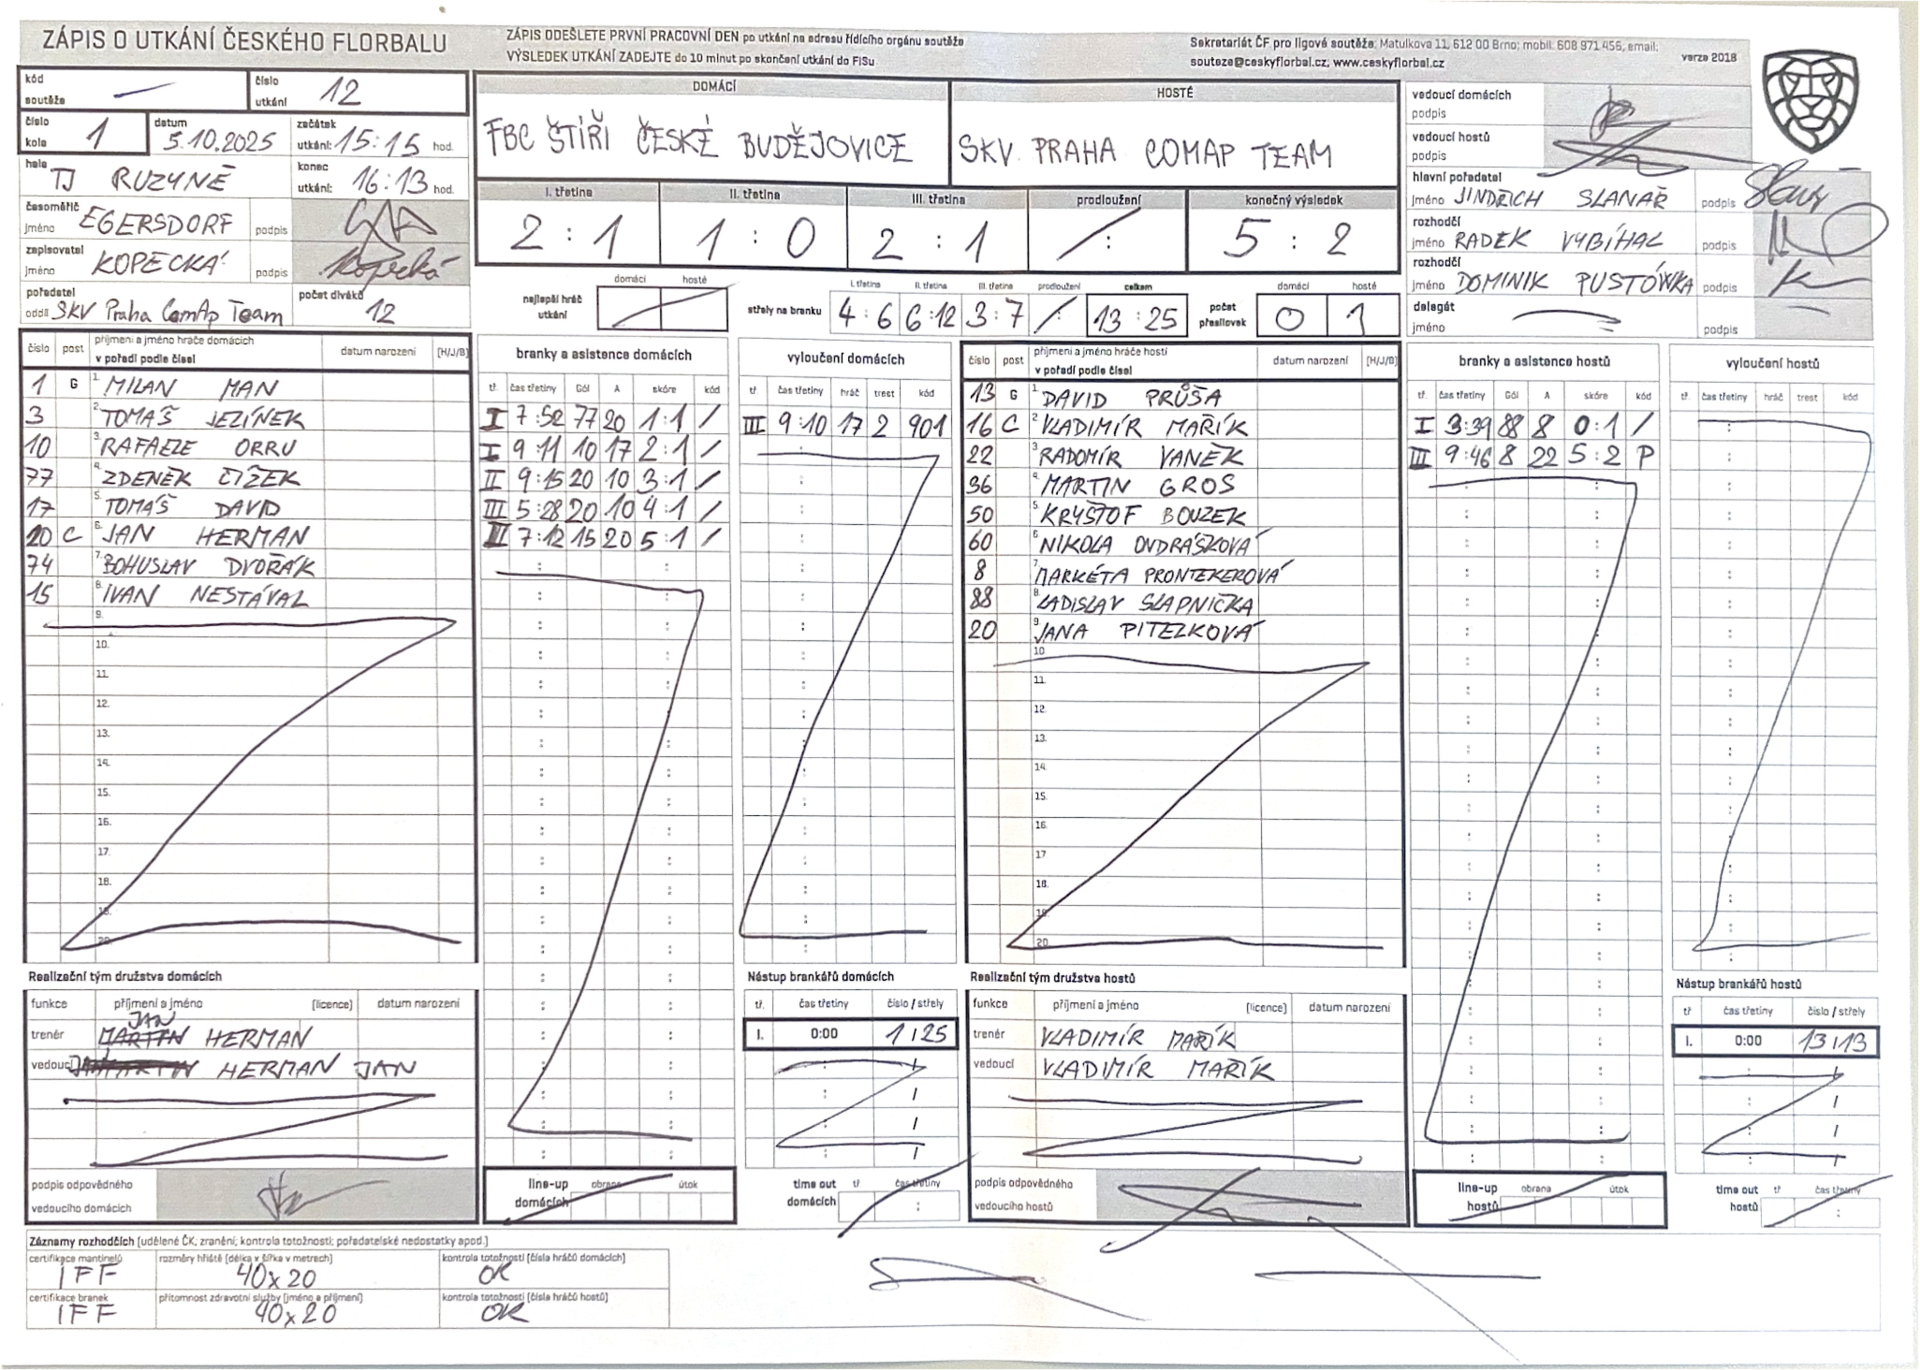 ZÁPIS O UTKÁNÍ ČESKÉHO FLORBALU
ZÁPIS ODEŠLETE PRVNÍ PRACOVNÍ DEN po utkání na adresu řídícího orgánu soutěže
VÝSLEDEK UTKÁNÍ ZADEJTE do 10 minut po skončení utkání do FISu
Sekretariát ČF pro ligové soutěže: Matulkova 11, 612 00 Brno; mobil: 608 971 456, email:
souteze@ceskyflorbal.cz; www.ceskyflorbal.cz
verze 2018
kód soutěže —
číslo utkání 12
číslo kola 1
datum 5.10.2025
začátek utkání: 15:15 hod.
hala TJ RUZYNĚ
konec utkání: 16:13 hod.
časoměřič jméno EGERSDORF podpis
zapisovatel jméno KOPECKÁ podpis Kopecká
pořadatel oddíl SKV Praha ComAp Team
počet diváků 12
DOMÁCÍ
FBC ŠTÍŘI ČESKÉ BUDĚJOVICE
HOSTÉ
SKV PRAHA COMAP TEAM
I. třetina II. třetina III. třetina prodloužení konečný výsledek
2 : 1 1 : 0 2 : 1 / : 5 : 2
nejlepší hráč utkání domácí hosté
střely na branku I. třetina II. třetina III. třetina prodloužení celkem
4 : 6 6 : 12 3 : 7 / 13 : 25
počet přesilovek domácí hosté
0 1
vedoucí domácích podpis
vedoucí hostů podpis
hlavní pořadatel jméno JINDŘICH SLANAŘ podpis
rozhodčí jméno RADEK VYBÍHAL podpis
rozhodčí jméno DOMINIK PUSTÓWKA podpis
delegát jméno — podpis —
číslo post příjmení a jméno hráče domácích v pořadí podle čísel datum narození (H/J/B)
1 G 1. MILAN MAN
3 2. TOMÁŠ JEZÍNEK
10 3. RAFAELE ORRU
77 4. ZDENĚK ČÍŽEK
17 5. TOMÁŠ DAVID
20 C 6. JAN HERMAN
74 7. BOHUSLAV DVOŘÁK
15 8. IVAN NESTÁVAL
9.
10.
11.
12.
13.
14.
15.
16.
17.
18.
19.
20.
branky a asistence domácích
tř. čas třetiny Gól A skóre kód
I 7:52 77 20 1:1 /
I 9:11 10 17 2:1 /
II 9:15 20 10 3:1 /
III 5:28 20 10 4:1 /
III 7:12 15 20 5:1 /
vyloučení domácích
tř čas třetiny hráč trest kód
III 9:10 17 2 901
číslo post příjmení a jméno hráče hostí v pořadí podle čísel datum narození (H/J/B)
13 G 1. DAVID PRŮŠA
16 C 2. VLADIMÍR MAŘÍK
22 3. RADOMÍR VANĚK
36 4. MARTIN GROS
50 5. KRYŠTOF BOUZEK
60 6. NIKOLA ONDRÁŠKOVÁ
8 7. MARKÉTA PRONTEKEROVÁ
88 8. LADISLAV SLAPNIČKA
20 9. JANA PITELKOVÁ
10
11.
12.
13.
14.
15.
16.
17
18.
19.
20.
branky a asistence hostů
tř. čas třetiny Gól A skóre kód
I 3:39 88 8 0:1 /
III 9:46 8 22 5:2 P
vyloučení hostů
tř. čas třetiny hráč trest kód
Realizační tým družstva domácích
funkce příjmení a jméno (licence) datum narození
trenér JAN HERMAN
vedoucí HERMAN JAN
podpis odpovědného vedoucího domácích
line-up domácích obrana útok
Nástup brankářů domácích
tř. čas třetiny číslo / střely
I. 0:00 1 / 25
time out domácích tř čas třetiny
Realizační tým družstva hostů
funkce příjmení a jméno (licence) datum narození
trenér VLADIMÍR MAŘÍK
vedoucí VLADIMÍR MAŘÍK
podpis odpovědného vedoucího hostů
line-up hostů obrana útok
Nástup brankářů hostů
tř čas třetiny číslo / střely
I. 0:00 13 / 13
time out hostů tř čas třetiny
Záznamy rozhodčích (udělené ČK; zranění; kontrola totožnosti; pořadatelské nedostatky apod.)
certifikace mantinelů IFF
rozměry hřiště (délka x šířka v metrech) 40x20
kontrola totožnosti (čísla hráčů domácích) OK
certifikace branek IFF
přítomnost zdravotní služby (jméno a příjmení) 40x20
kontrola totožnosti (čísla hráčů hostů) OK